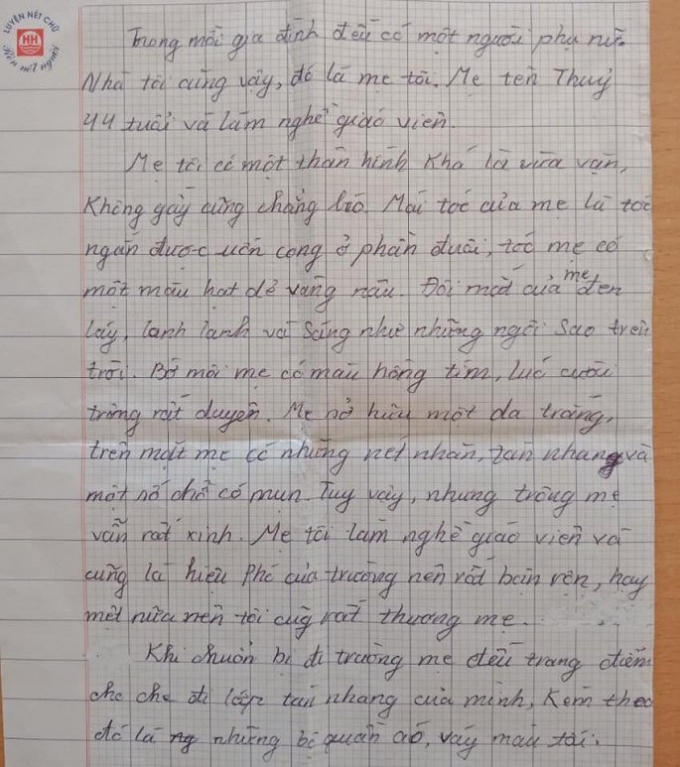 LUYỆN NÉT CHỮ
HH
Rèn nết người
Trong mỗi gia đình đều có một người phụ nữ.
Nhà tôi cũng vậy, đó là mẹ tôi. Mẹ tên Thuỷ
44 tuổi và làm nghề giáo viên.
Mẹ tôi có một thân hình khá là vừa vặn,
không gầy cũng chẳng béo. Mái tóc của mẹ là tóc
ngắn được uốn cong ở phần đuôi, tóc mẹ có
một màu hạt dẻ vàng nâu. Đôi mắt của mẹ đen
láy, lanh lanh và sáng như những ngôi sao trên
trời. Bờ môi mẹ có màu hồng tím, lúc cười
trông rất duyên. Mẹ sở hữu một da trắng,
trên mặt mẹ có những nét nhăn, tàn nhang và
một số chỗ có mụn. Tuy vậy, nhưng trông mẹ
vẫn rất xinh. Mẹ tôi làm nghề giáo viên và
cũng là hiệu phó của trường nên rất bận rộn, hay
mệt nữa nên tôi cũg rất thương mẹ.
Khi chuẩn bị đi trường mẹ đều trang điểm
cho che đi lớp tàn nhang của mình, kèm theo
đó là ng những bộ quần áo, váy màu tối.